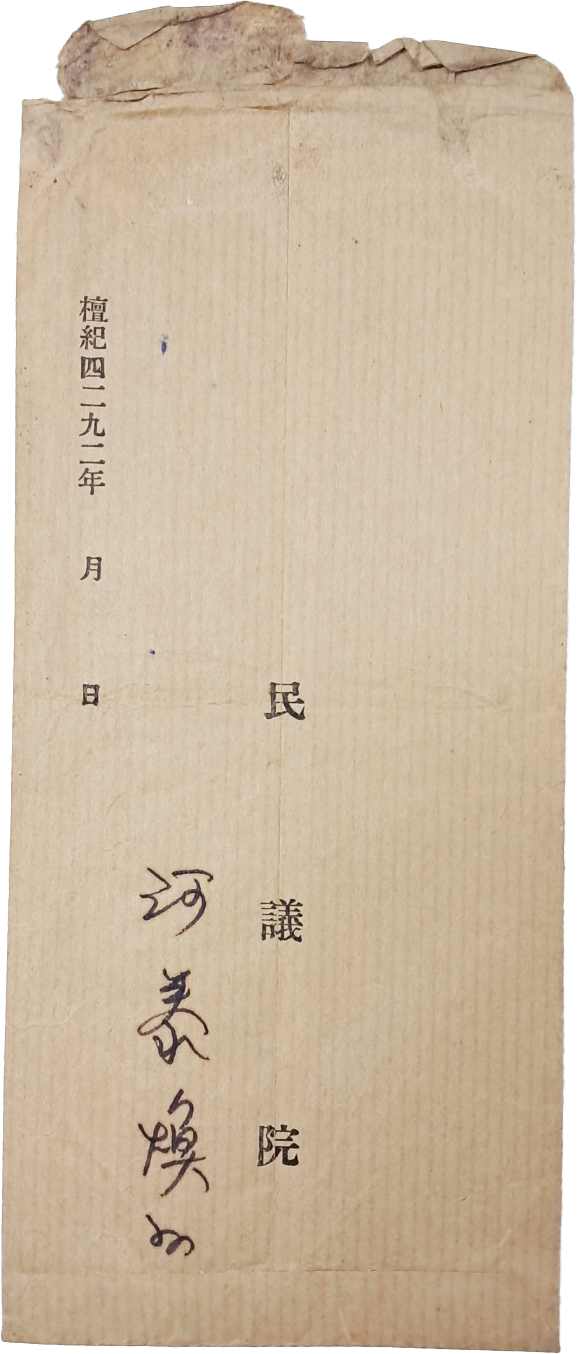 民議院
河泰煥
檀紀四二九二年 月 日